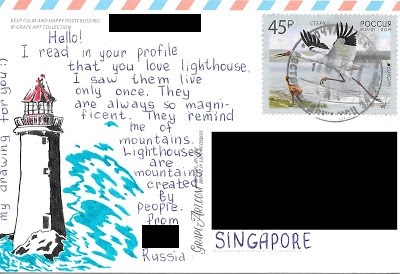 KEEP CALM AND HAPPY POSTCROSSING
© GRAPE ART COLLECTION
Hello!
I read in your profile
that you love lighthouse.
I saw them live
only once. They
are always so magni-
ficent. They remind
me of
mountains.
Lighthouses
are
mountains
created
by
people.
From
Russia
my drawing for you :)
45₽
СТЕРХ
РОССИЯ
RUSSIA · 2019
EUROPA
SINGAPORE